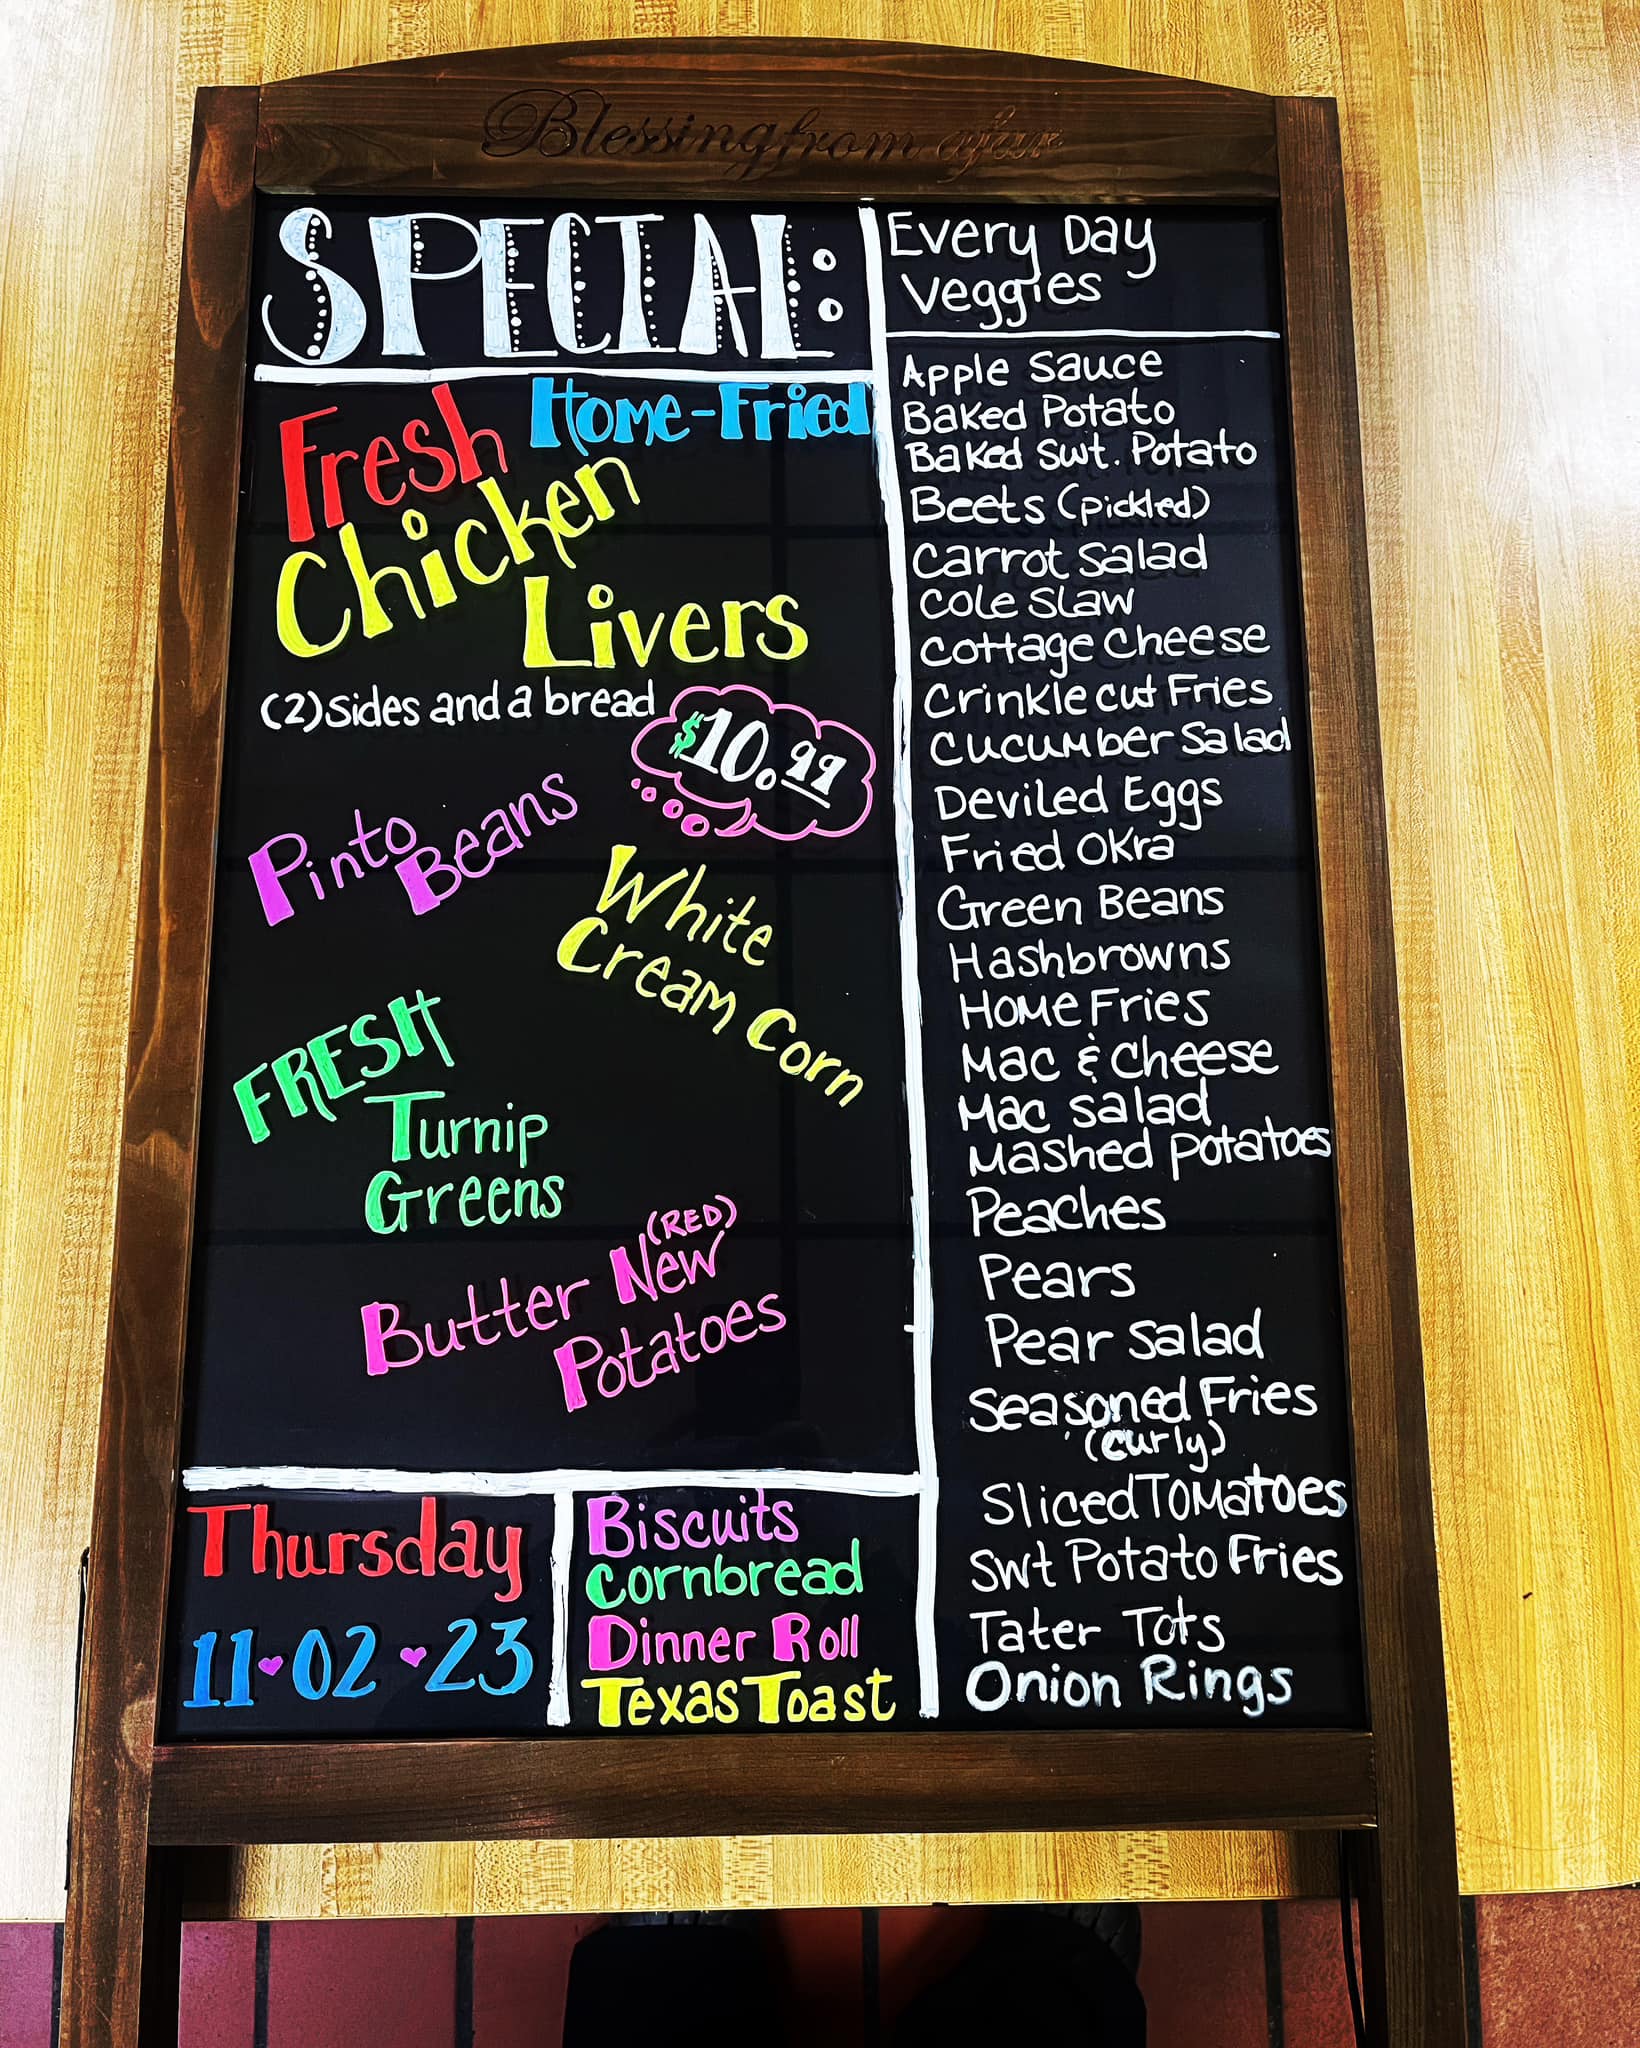 Blessing from afar
SPECIAL:
Fresh Home-Fried
Chicken
Livers
(2) sides and a bread
$10.99
Pinto
Beans
White
Cream Corn
FRESH
Turnip
Greens
(RED)
Butter New
Potatoes
Thursday
11·02·23
Biscuits
Cornbread
Dinner Roll
Texas Toast
Every Day
Veggies
Apple Sauce
Baked Potato
Baked Swt. Potato
Beets (pickled)
Carrot Salad
Cole Slaw
Cottage Cheese
Crinkle cut Fries
Cucumber Salad
Deviled Eggs
Fried Okra
Green Beans
Hashbrowns
Home Fries
Mac & Cheese
Mac Salad
Mashed Potatoes
Peaches
Pears
Pear Salad
Seasoned Fries
(curly)
Sliced Tomatoes
Swt Potato Fries
Tater Tots
Onion Rings